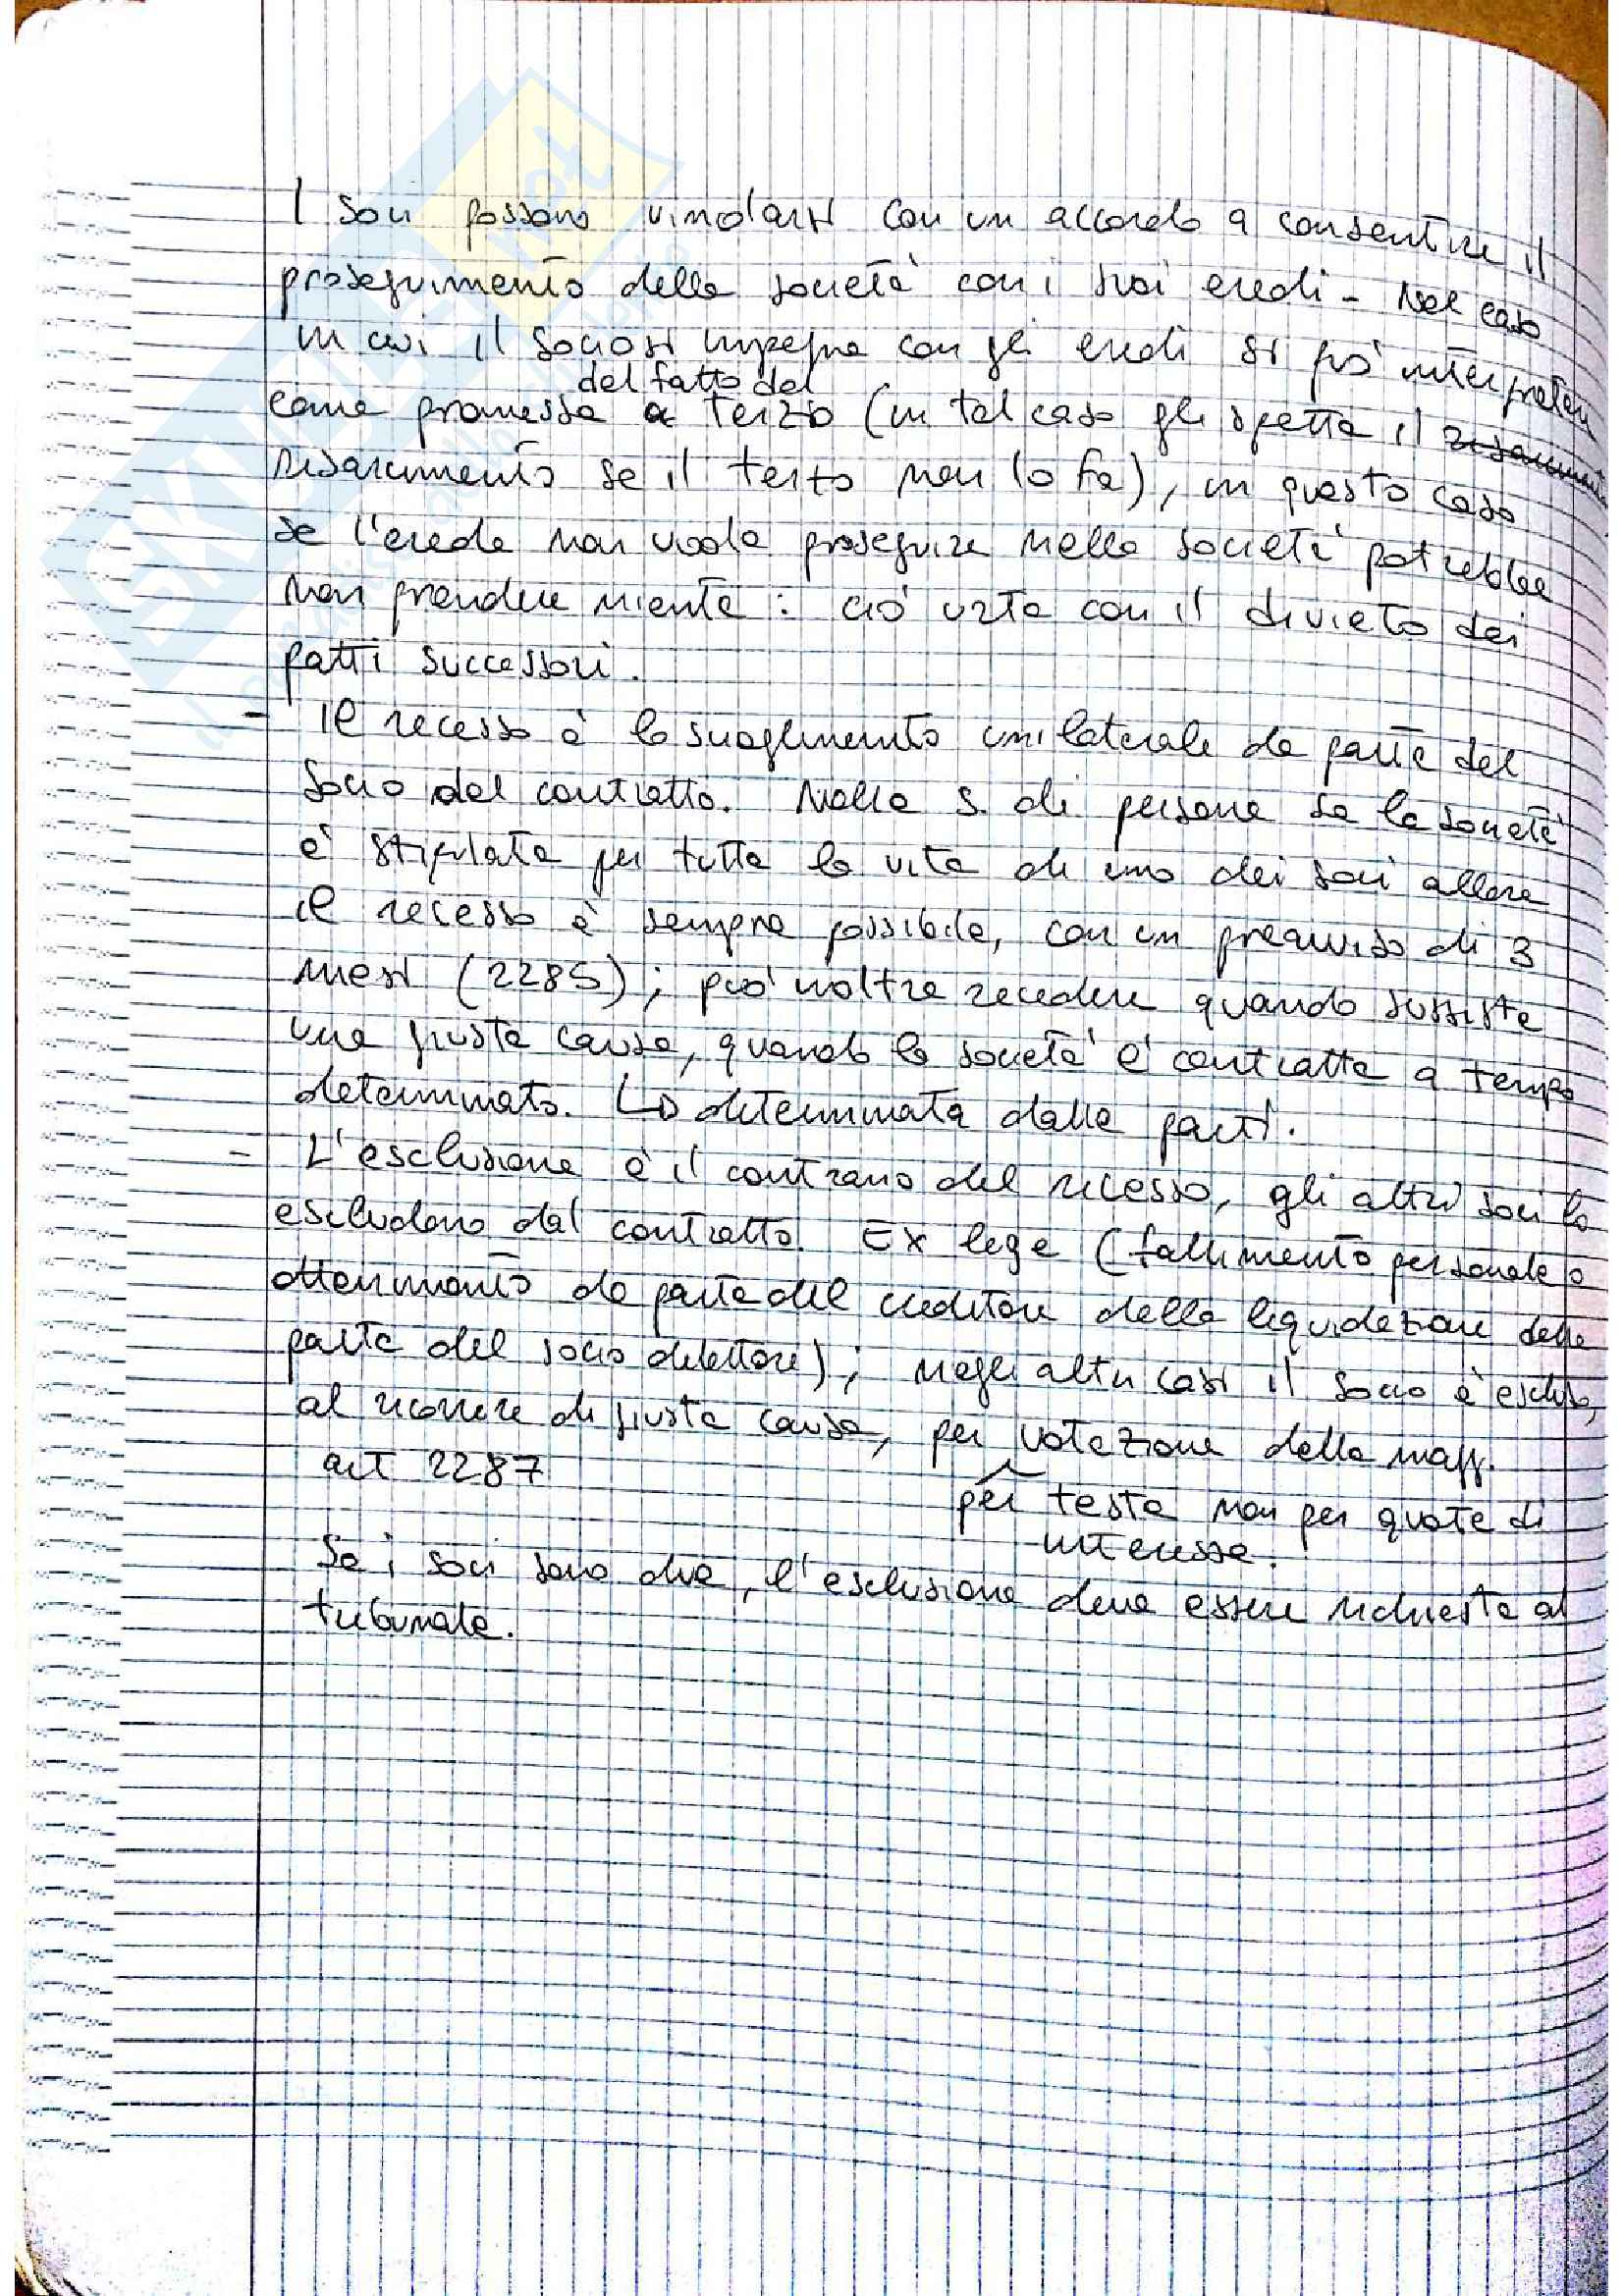 I soci possono vincolarsi con un accordo a consentire il
proseguimento della società con i suoi eredi - Nel caso
in cui il socio si impegna con gli eredi si può interpretare
del fatto del
come promessa a terzo (in tal caso gli spetta il risarcimento
risarcimento se il terzo non lo fa), in questo caso
se l'erede non vuole proseguire nella società potrebbe
non prendere niente: ciò urta con il divieto dei
patti successori.
- Il recesso è lo scioglimento unilaterale da parte del
socio del contratto. Nella s. di persone se la società
è stipulata per tutta la vita di uno dei soci allora
il recesso è sempre possibile, con un preavviso di 3
mesi (2285); può inoltre recedere quando sussiste
una giusta causa, quando la società è contratta a tempo
determinato. ↳ determinata dalle parti.
- L'esclusione è il contrario del recesso, gli altri soci lo
escludono dal contratto. Ex lege (fallimento personale o
ottenimento da parte del creditore della liquidazione della
parte del socio debitore); negli altri casi il socio è escluso,
al ricorrere di giusta causa, per votazione della magg.
art 2287
per teste non per quote di
interesse.
Se i soci sono due, l'esclusione deve essere richiesta al
tribunale.